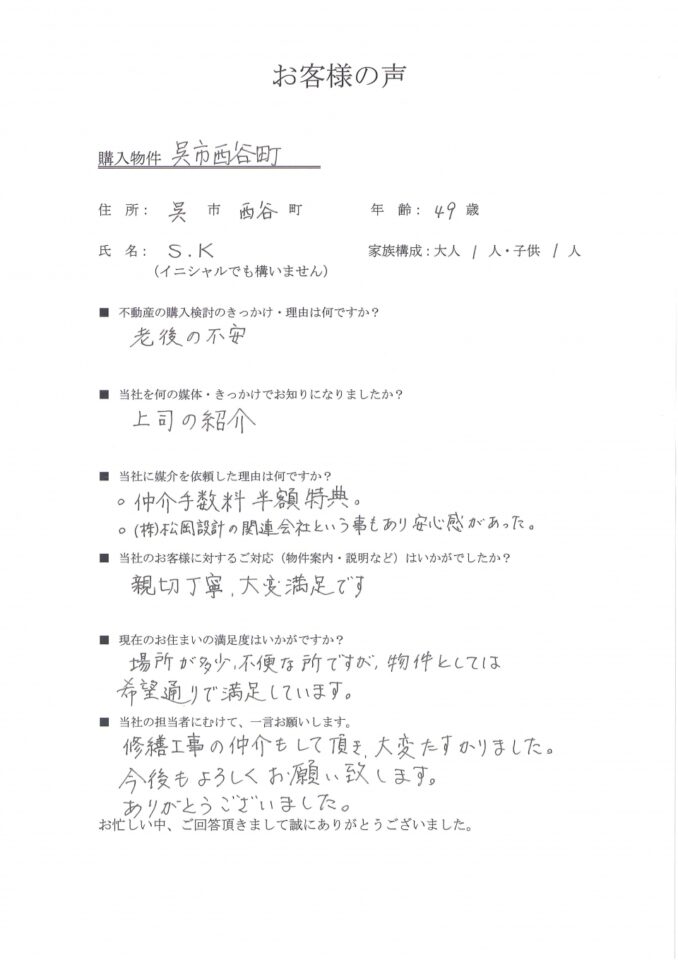 お客様の声
購入物件 呉市西谷町
住 所: 呉 市 西谷 町 年 齢: 49 歳
氏 名: S.K 家族構成:大人 1 人・子供 1 人
(イニシャルでも構いません)
■ 不動産の購入検討のきっかけ・理由は何ですか?
老後の不安
■ 当社を何の媒体・きっかけでお知りになりましたか?
上司の紹介
■ 当社に媒介を依頼した理由は何ですか?
○ 仲介手数料 半額特典。
○ (株)松岡設計の関連会社という事もあり安心感があった。
■ 当社のお客様に対するご対応(物件案内・説明など)はいかがでしたか?
親切丁寧、大変満足です
■ 現在のお住まいの満足度はいかがですか?
場所が多少、不便な所ですが、物件としては
希望通りで満足しています。
■ 当社の担当者にむけて、一言お願いします。
修繕工事の仲介もして頂き、大変たすかりました。
今後もよろしくお願い致します。
ありがとうございました。
お忙しい中、ご回答頂きまして誠にありがとうございました。